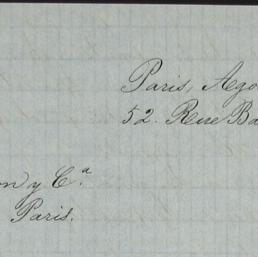 Paris, Ago
52. Rue Ba
on y C.ª
Paris.